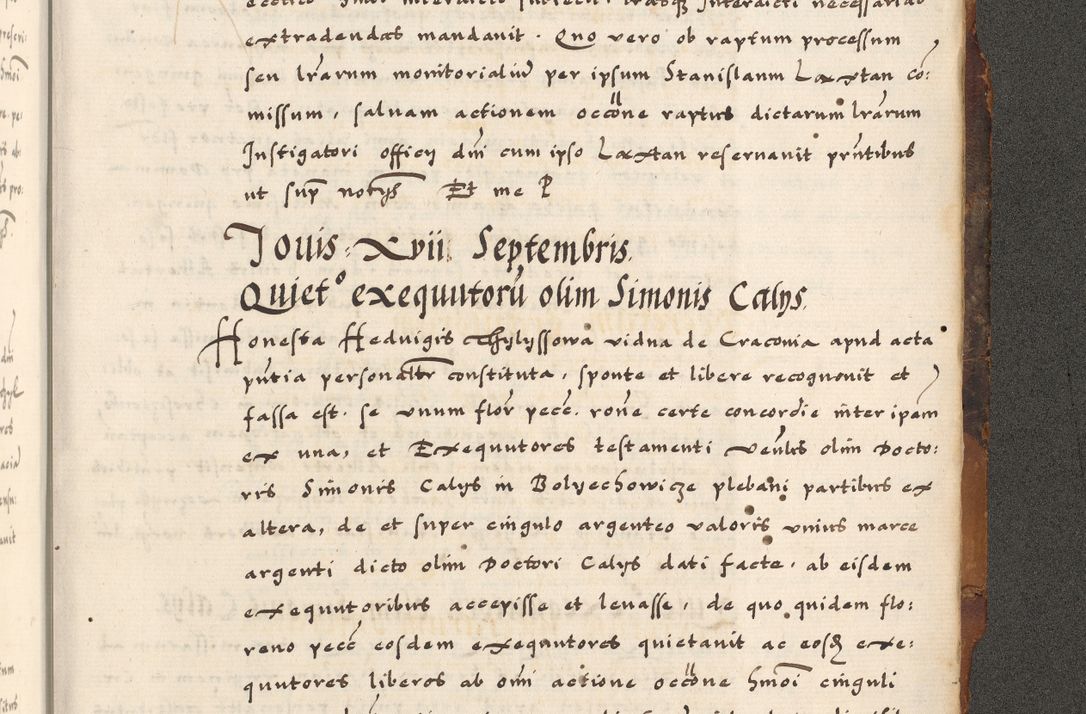 extradendas mandavit. Quo vero ob raptum processum
seu lrarum monitorialiū per ipsum Stanislaum Laxtan cō:
missum, saluam actionem occōne raptus dictarum lrarum
Instigatori officij dni cum ipso Laxtan reseruauit pntibus
ut supᵃ notijs Et me P
Iouis Xvii Septembris.
Quietᵒ exequutorū olim Simonis Calijs.
Honesta Heduigis Thylyssowa vidua de Cracouia apud acta
pntia personaltr constituta, sponte et libere recognouit et
fassa est. se vnum flor pecc. rone certe concordie inter ipam
ex una, et Exequutores testamenti venlis olim Docto:
ris Simonis Calijs in Bolyechowicze plebani partibus ex
altera, de et super cingulo argenteo valoris vnius marce
argenti dicto olim Doctori Calijs dati facte, ab eisdem
exequutoribus accepisse et leuasse, de quo quidem flo:
reno pecc eosdem exequutores quietauit ac eosȝ exe:
quutores liberos ab omi actione occōne hmōi cinguli